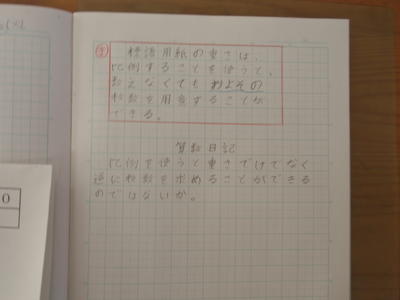 ま 標語用紙の重さは、
比例することを使うと、
数えなくてもおよその
枚数を用意することが
できる。
算数日記
比例を使うと重さだけでなく
逆に枚数を求めることができる
のではないか。
0